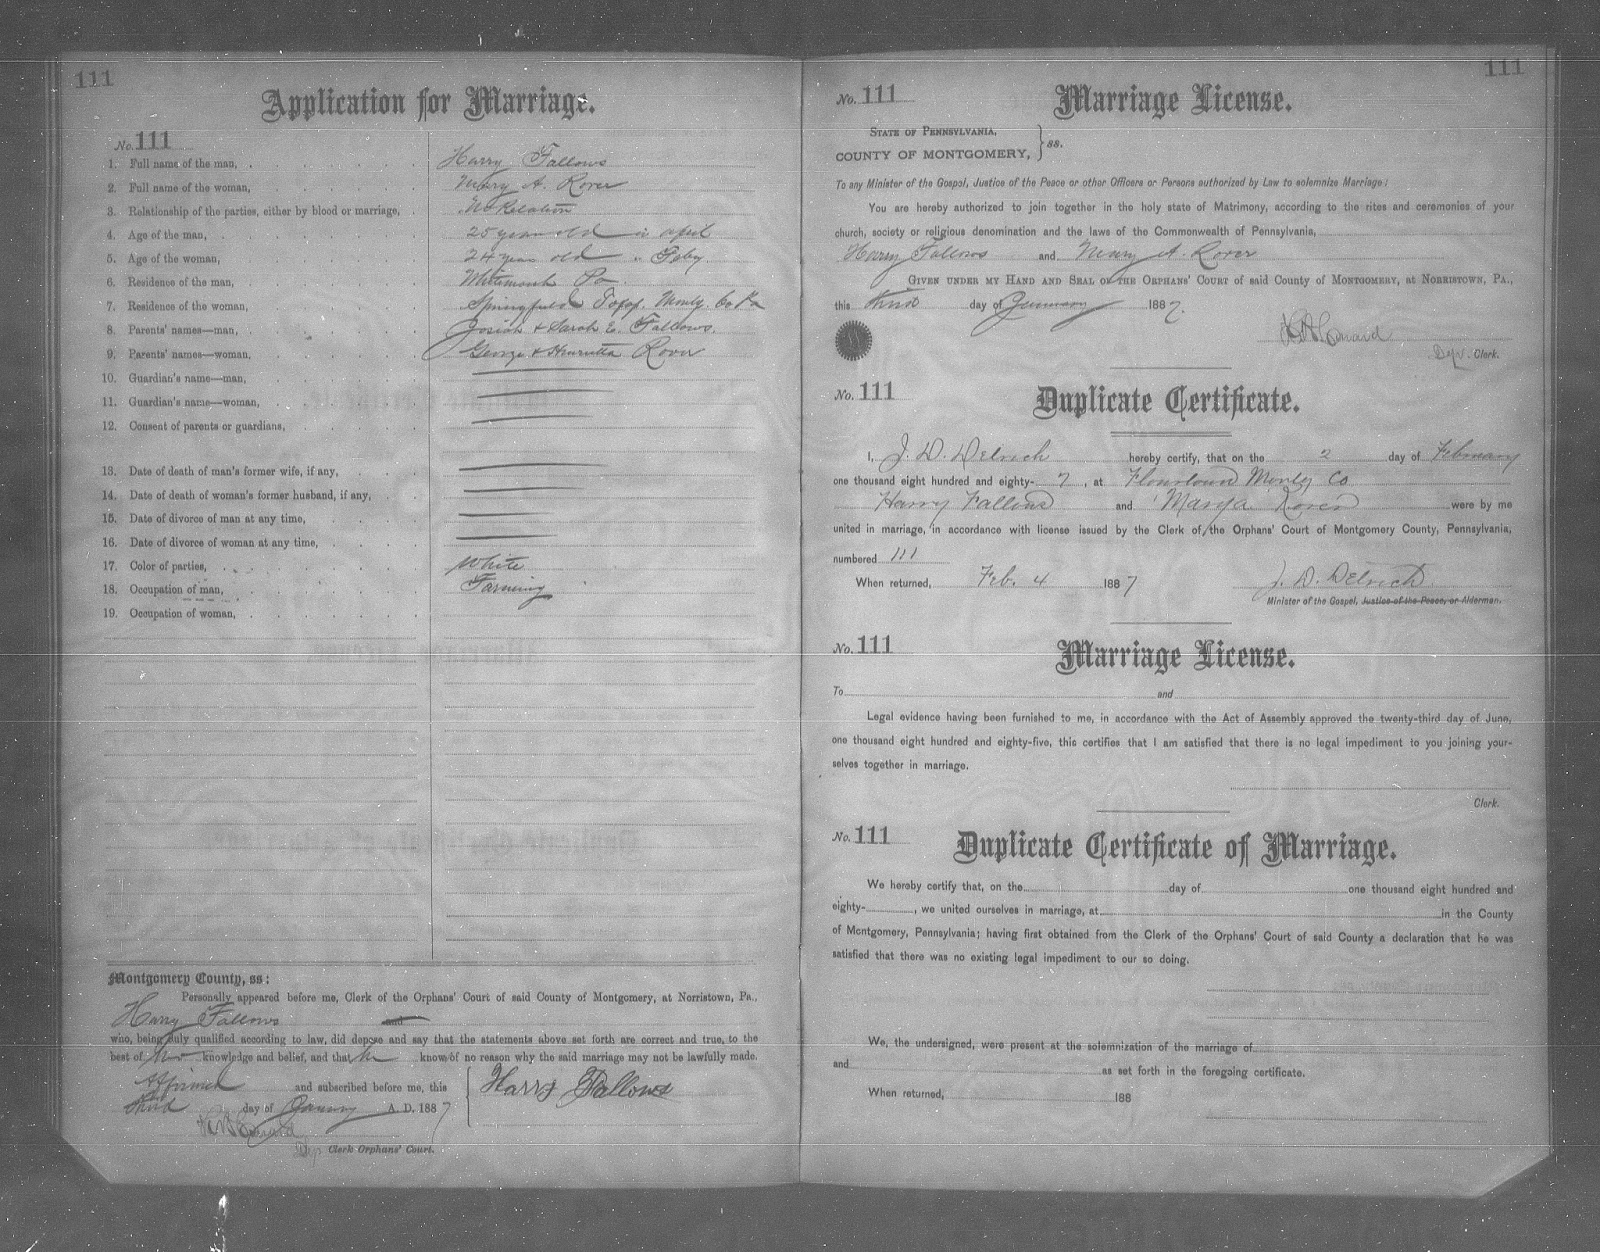 111
Application for Marriage.
No. 111
1. Full name of the man, Harry Fallows
2. Full name of the woman, Mary A. Rover
3. Relationship of the parties, either by blood or marriage, No Relation
4. Age of the man, 25 years old in april
5. Age of the woman, 24 years old " Feby
6. Residence of the man, Whitemarsh Pa
7. Residence of the woman, Springfield Twp. Montg. Co Pa
8. Parents' names—man, Josiah & Sarah E. Fallows.
9. Parents' names—woman, George & Henrietta Rover
10. Guardian's name—man,
11. Guardian's name—woman,
12. Consent of parents or guardians,
13. Date of death of man's former wife, if any,
14. Date of death of woman's former husband, if any,
15. Date of divorce of man at any time,
16. Date of divorce of woman at any time,
17. Color of parties, White
18. Occupation of man, Farming
19. Occupation of woman,
Montgomery County, ss:
Personally appeared before me, Clerk of the Orphans' Court of said County of Montgomery, at Norristown, Pa.,
Harry Fallows and
who, being duly qualified according to law, did depose and say that the statements above set forth are correct and true, to the
best of his knowledge and belief, and that he know of no reason why the said marriage may not be lawfully made.
Affirmed and subscribed before me, this
third day of January A. D. 1887
Harry Fallows
Dep Clerk Orphans' Court.
111
No. 111 Marriage License.
State of Pennsylvania,
County of Montgomery, } ss.
To any Minister of the Gospel, Justice of the Peace or other Officers or Persons authorized by Law to solemnize Marriage:
You are hereby authorized to join together in the holy state of Matrimony, according to the rites and ceremonies of your
church, society or religious denomination and the laws of the Commonwealth of Pennsylvania,
Harry Fallows and Mary A. Rover
Given under my Hand and Seal of the Orphans' Court of said County of Montgomery, at Norristown, Pa.,
this third day of January 1887.
Dep. Clerk.
No. 111 Duplicate Certificate.
I, J. D. Detrich hereby certify, that on the 2 day of February
one thousand eight hundred and eighty-7, at Flourtown Montg Co
Harry Fallows and Mary A. Rover were by me
united in marriage, in accordance with license issued by the Clerk of the Orphans' Court of Montgomery County, Pennsylvania,
numbered 111
When returned, Feb. 4 1887 J. D. Detrich
Minister of the Gospel, Justice of the Peace, or Alderman.
No. 111 Marriage License.
To and
Legal evidence having been furnished to me, in accordance with the Act of Assembly approved the twenty-third day of June,
one thousand eight hundred and eighty-five, this certifies that I am satisfied that there is no legal impediment to you joining your-
selves together in marriage.
Clerk.
No. 111 Duplicate Certificate of Marriage.
We hereby certify that, on the day of one thousand eight hundred and
eighty- , we united ourselves in marriage, at in the County
of Montgomery, Pennsylvania; having first obtained from the Clerk of the Orphans' Court of said County a declaration that he was
satisfied that there was no existing legal impediment to our so doing.
We, the undersigned, were present at the solemnization of the marriage of
and as set forth in the foregoing certificate.
When returned, 188